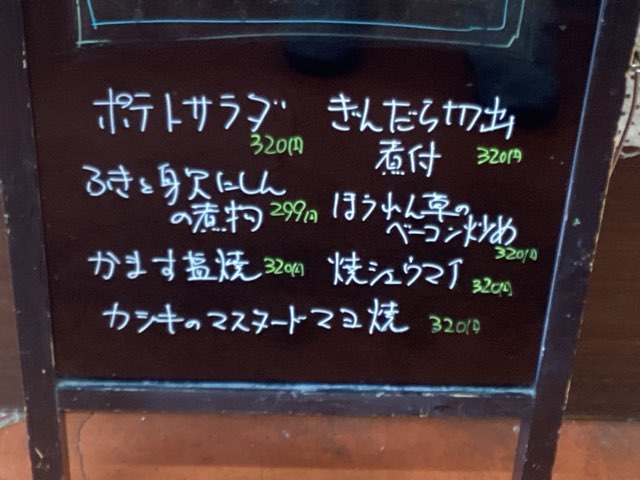 ポテトサラダ
320円
ふきと身欠にしん
の煮物 299円
かます塩焼 320円
ぎんだら切出
煮付 320円
ほうれん草の
ベーコン炒め
320円
焼シュウマイ
320円
カジキのマスタードマヨ焼 320円